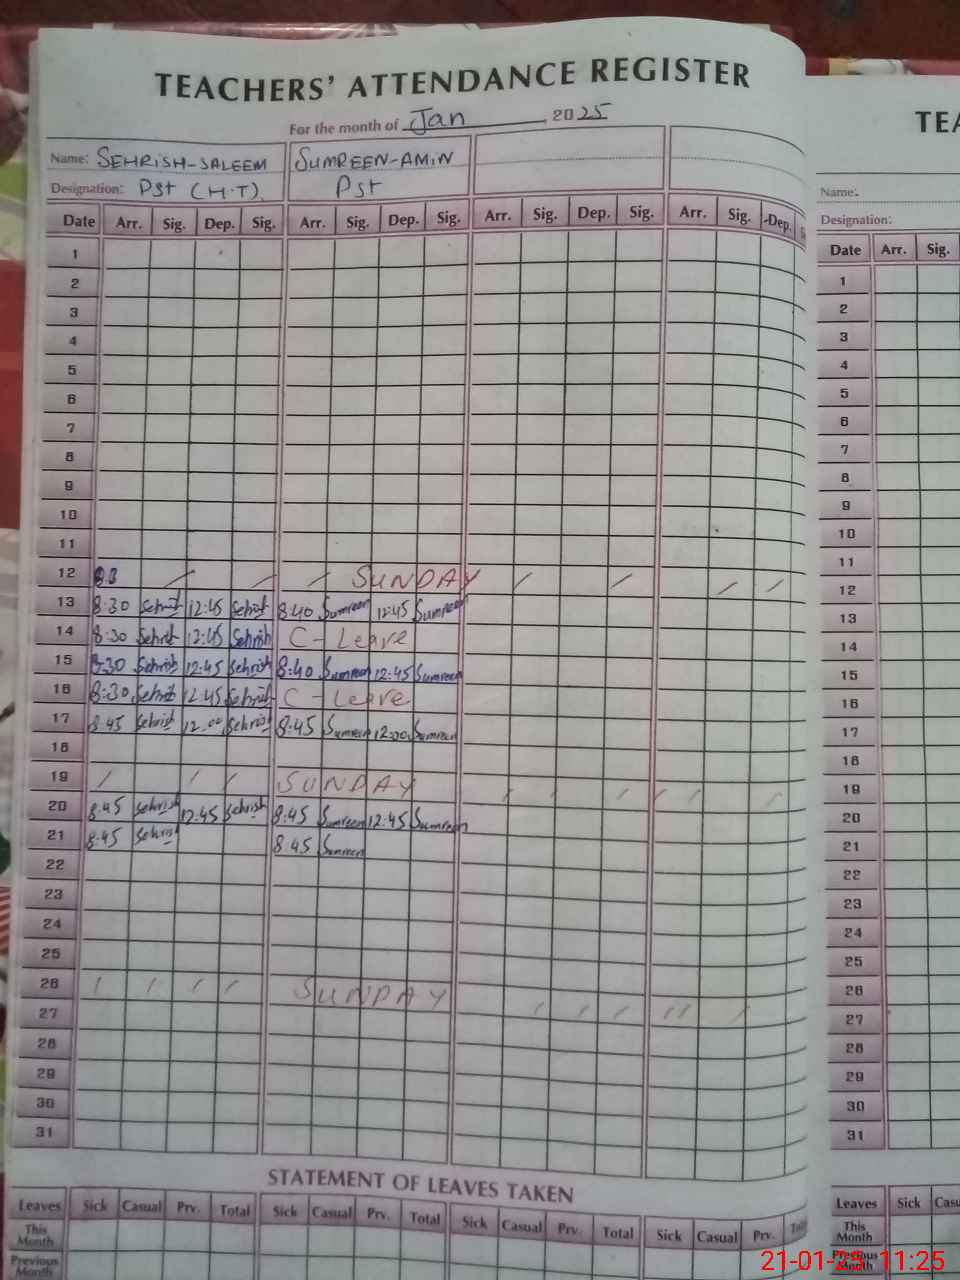 TEACHERS' ATTENDANCE REGISTER
For the month of Jan, 2025
Name: SEHRISH-SALEEM SUMREEN-AMIN
Designation: Pst (H.T). Pst
Date Arr. Sig. Dep. Sig. Arr. Sig. Dep. Sig. Arr. Sig. Dep. Sig. Arr. Sig. Dep.
1
2
3
4
5
6
7
8
9
10
11
12 SUNDAY
13 8:30 Sehrish 12:45 Sehrish 8:40 Sumreen 12:45 Sumreen
14 8:30 Sehrish 12:45 Sehrish C-Leave
15 8:30 Sehrish 12:45 Sehrish 8:40 Sumreen 12:45 Sumreen
16 8:30 Sehrish 12:45 Sehrish C-Leave
17 8:45 Sehrish 12:00 Sehrish 8:45 Sumreen 12:00 Sumreen
18
19 SUNDAY
20 8:45 Sehrish 12:45 Sehrish 8:45 Sumreen 12:45 Sumreen
21 8:45 Sehrish 8:45 Sumreen
22
23
24
25
26 SUNDAY
27
28
29
30
31
STATEMENT OF LEAVES TAKEN
Leaves Sick Casual Prv. Total Sick Casual Prv. Total Sick Casual Prv. Total Sick Casual Prv.
This Month
Previous Month
TEA
Name:
Designation:
Date Arr. Sig.
1
2
3
4
5
6
7
8
9
10
11
12
13
14
15
16
17
18
19
20
21
22
23
24
25
26
27
28
29
30
31
Leaves Sick Casu
This Month
Previous Month
21-01-25 11:25